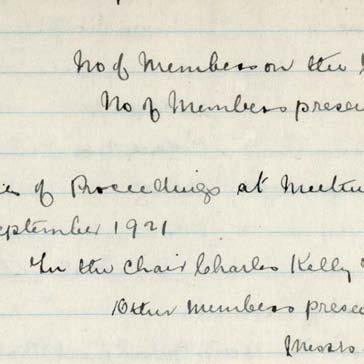 No of Members on the
No of Members prese
es of Proceedings at Meetin
eptember 1921
In the Chair Charles Kelly
Other members prese
Messrs